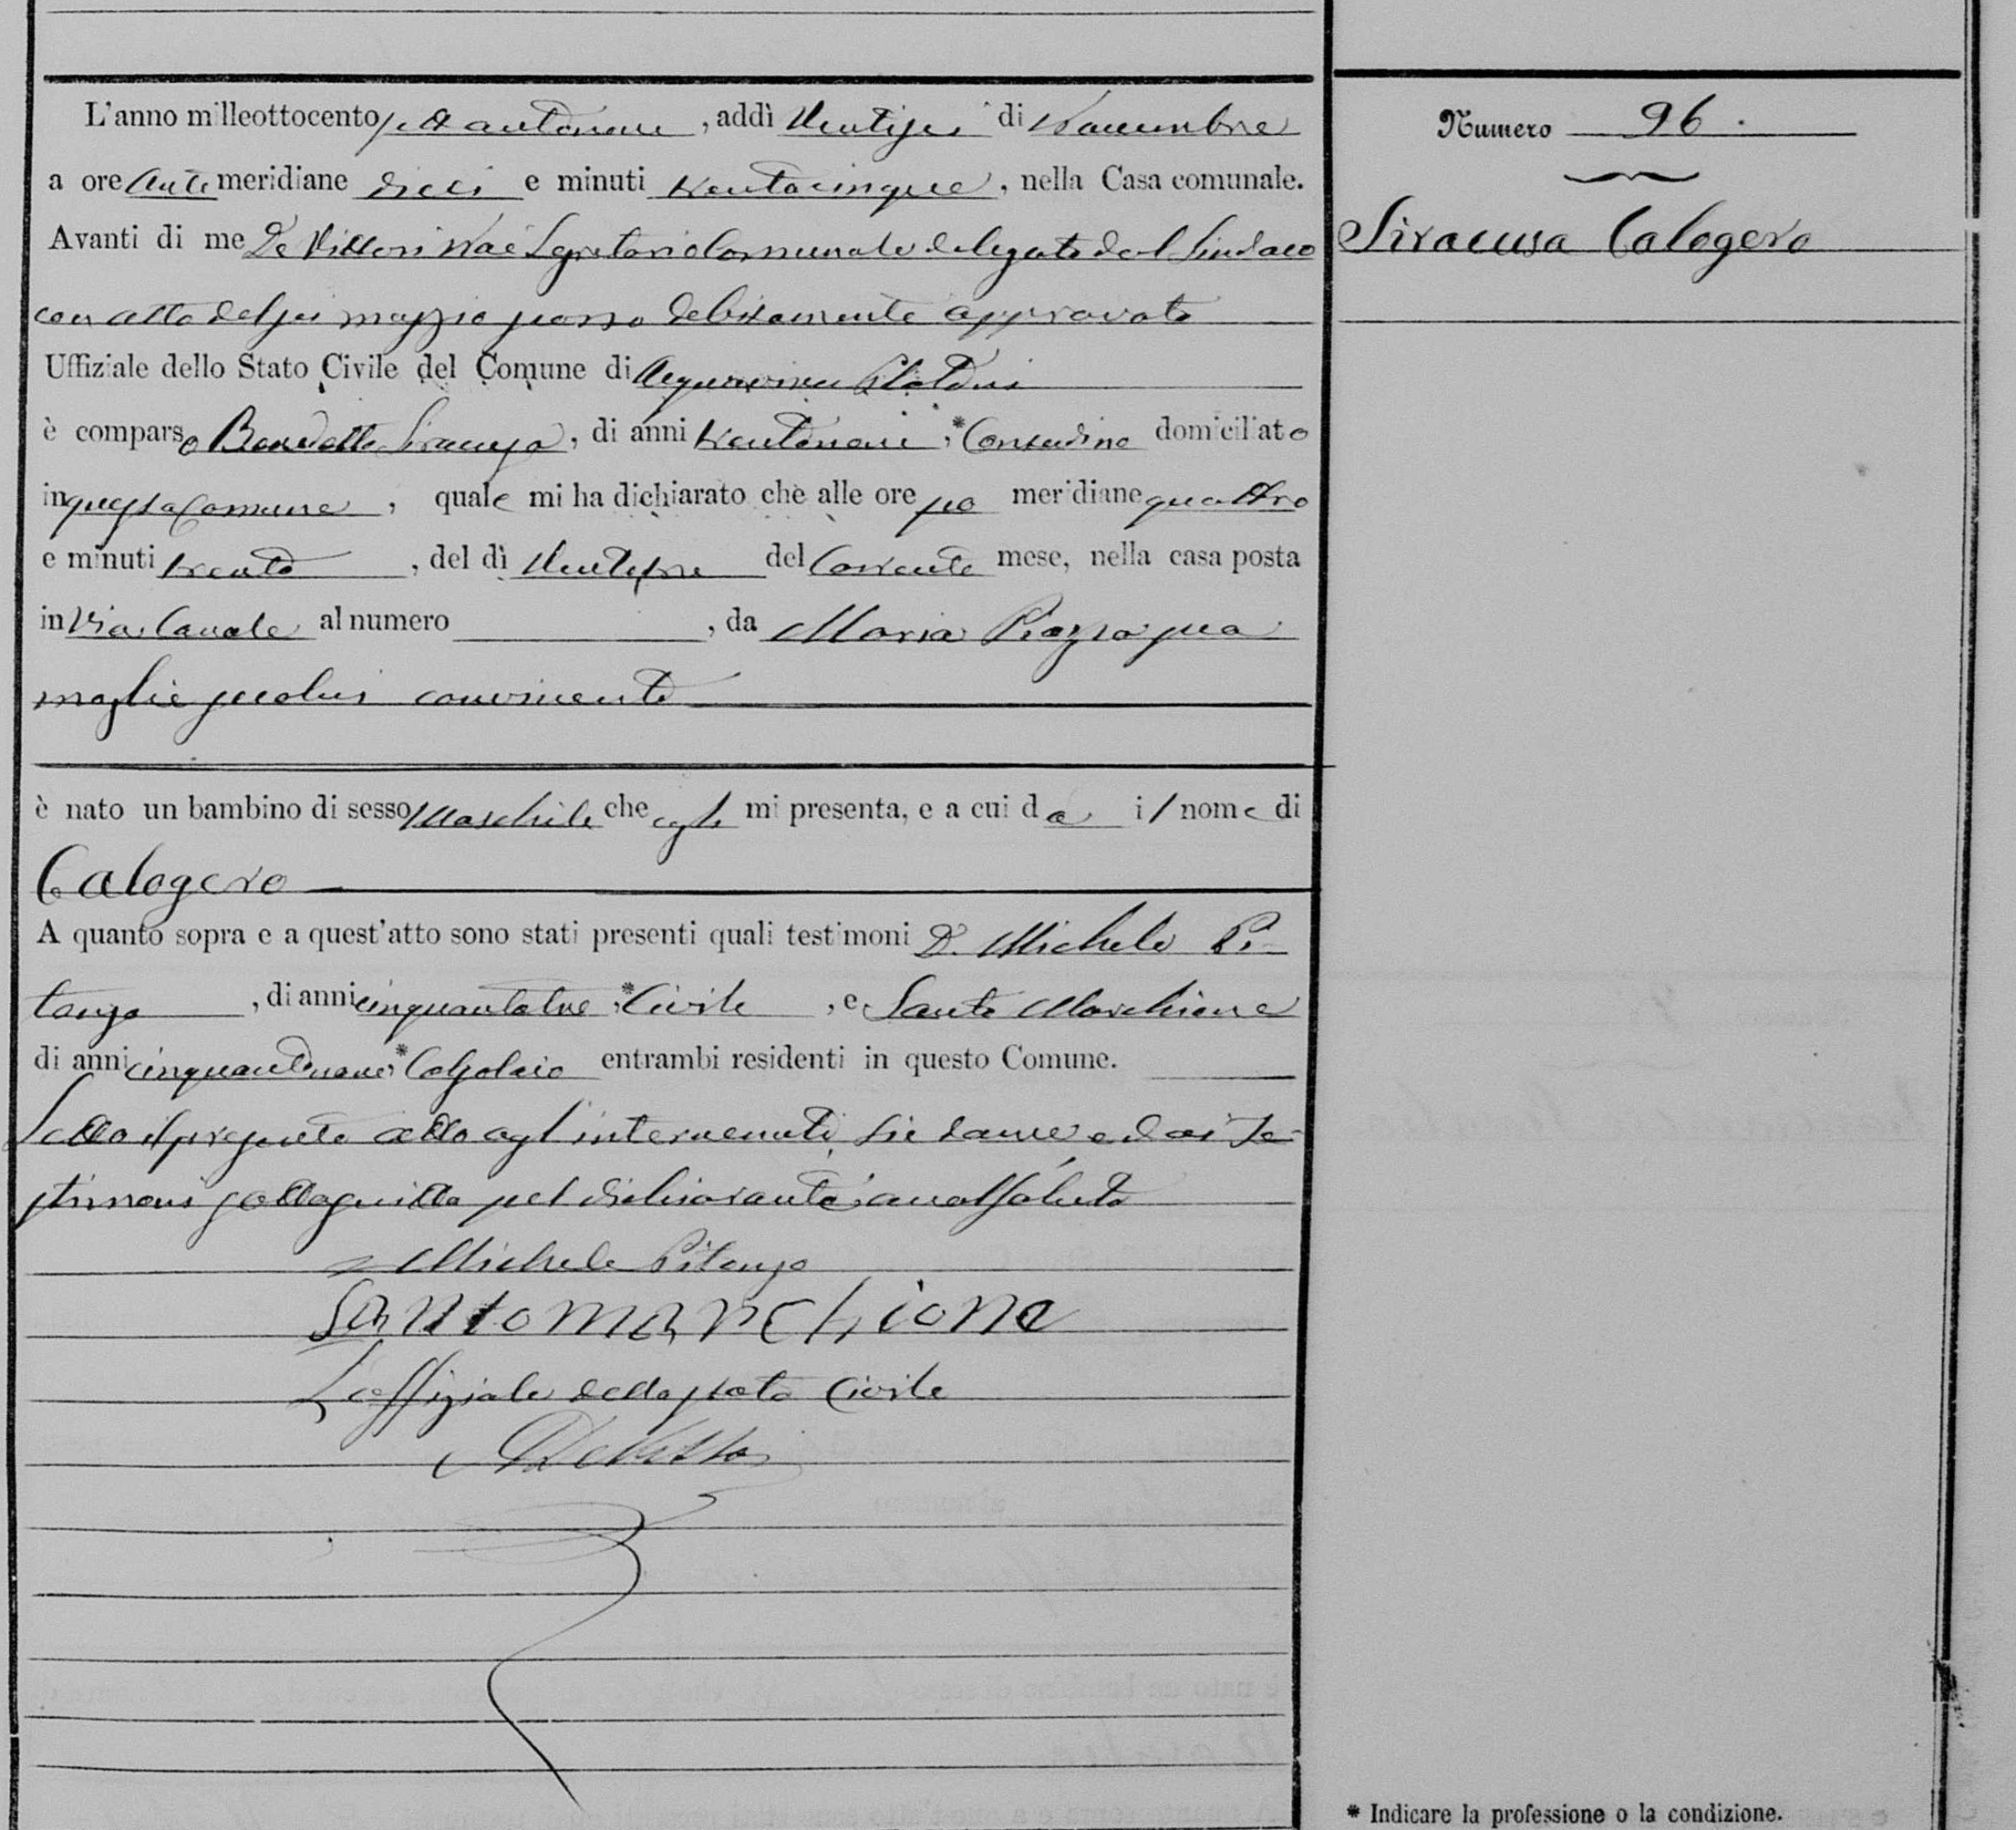 L'anno milleottocento settantanove, addì Ventisei di Novembre
a ore Antimeridiane dieci e minuti trentacinque, nella Casa comunale.
Avanti di me De Vittori Segretario Comunale delegato dal Sindaco
con atto del sei maggio scorso debitamente approvato
Uffiziale dello Stato Civile del Comune di Acquaviva Platani
è comparso Benedetto Siracusa, di anni trentanove, * Contadino domiciliato
in questa Comune, quale mi ha dichiarato che alle ore po meridiane quattro
e minuti trenta, del dì Ventitre del Corrente mese, nella casa posta
in Via Canale al numero , da Maria Piazza sua
moglie secolui convivente
è nato un bambino di sesso Maschile che egli mi presenta, e a cui da il nome di
Calogero
A quanto sopra e a quest'atto sono stati presenti quali testimoni D. Michele Pi-
tanza, di anni cinquantatre, * Civile, e Santo Marchione
di anni cinquantanove, * Calzolaio entrambi residenti in questo Comune.
Letto il presente atto agl'intervenuti si è dai te-
stimoni sottoscritto pel dichiarante analfabeta
Michele Pitanza
Santo marchione
L'uffiziale dello stato Civile
De Vittori
Numero 96.
Siracusa Calogero
* Indicare la professione o la condizione.